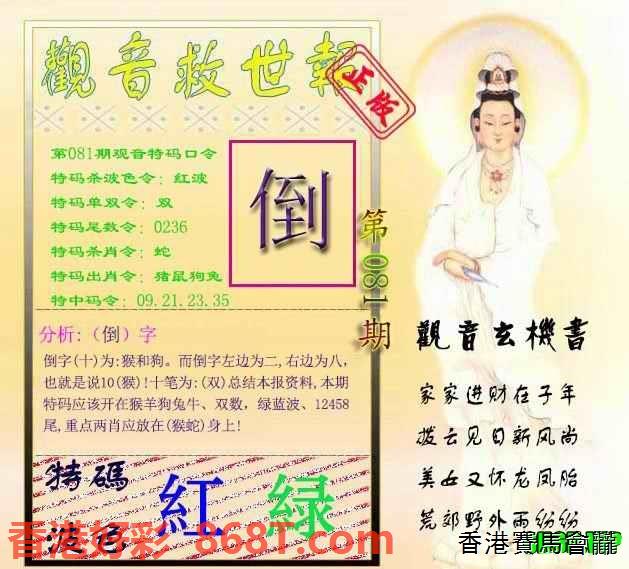 觀音救世報
正版
第081期观音特码口令
特码杀波色令：红波
特码单双令：双
特码尾数令：0236
特码杀肖令：蛇
特码出肖令：猪鼠狗兔
特中码令：09.21.23.35
倒
第081期
分析:（倒）字
倒字(十)为:猴和狗。而倒字左边为二,右边为八,
也就是说10(猴)!十笔为:(双)总结本报资料,本期
特码应该开在猴羊狗兔牛、双数，绿蓝波、12458
尾,重点两肖应放在(猴蛇)身上!
觀音玄機書
家家进财在子年
拨云见日新风尚
美女又怀龙凤胎
荒郊野外雨纷纷
特碼
波色
紅 绿
香港好彩 868T.com
香港賽馬會